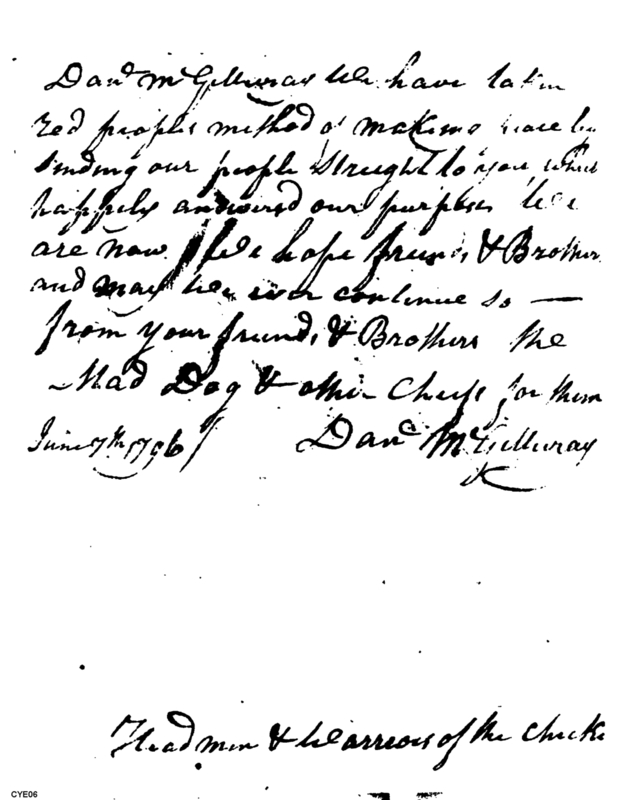 Danl McGillivray We have taken
red peoples method of making peace by
sending our people streight to you which
happely answered our purposes We
are now We hope friends & Brothers
and may We ever continue so —
from your friends & Brothers the
Mad Dog & other Chiefs for them
June 7th 1796 Danl McGillivray
Head men & Warriors of the Chicke
CYE06